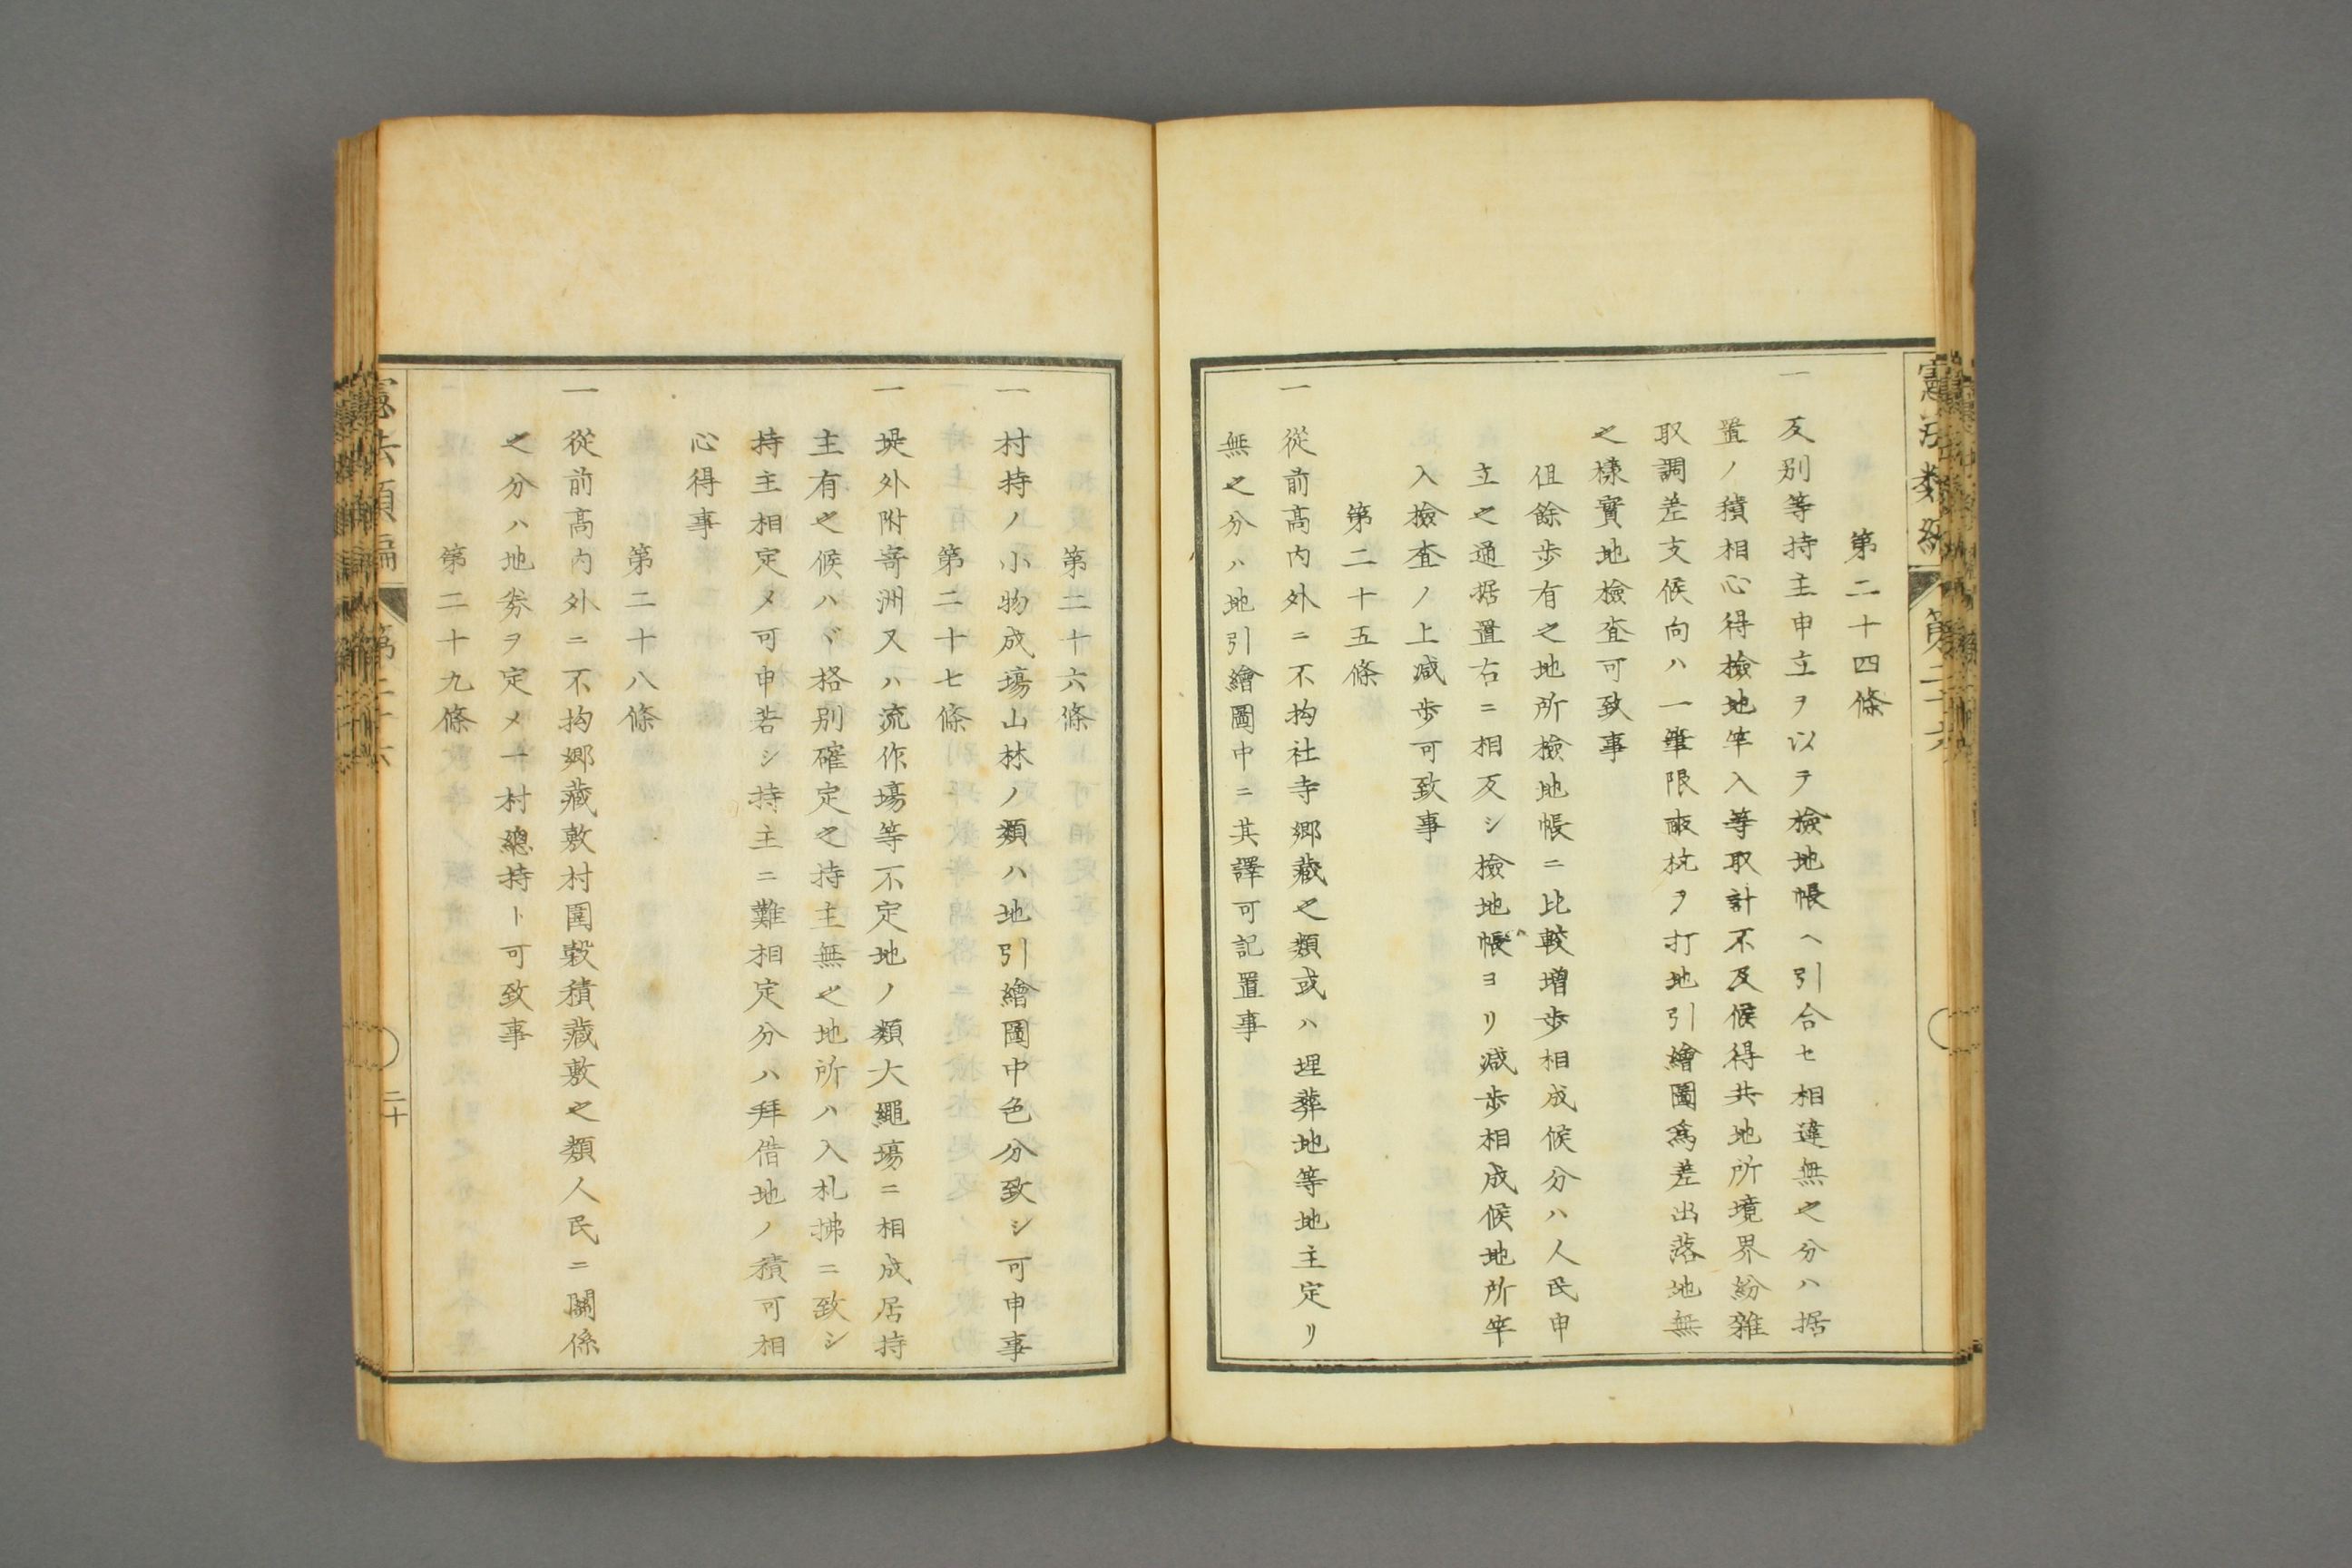 第二十四條
一反別等持主申立ヲ以テ檢地帳ヘ引合セ相違無之分ハ据
置ノ積相心得檢地竿入等取計不及候得共地所境界紛雜
取調差支候向ハ一筆限畝杭ヲ打地引繪圖爲差出落地無
之樣實地檢査可致事
但餘歩有之地所檢地帳ニ比較増歩相成候分ハ人民申
立之通据置右ニ相反シ檢地帳ヨリ減歩相成候地所竿
入檢査ノ上減歩可致事
第二十五條
一從前高内外ニ不拘社寺郷藏之類或ハ埋葬地等地主定リ
無之分ハ地引繪圖中ニ其譯可記置事
第二十六條
一村持ノ小物成場山林ノ類ハ地引繪圖中色分致シ可申事
第二十七條
一堤外附寄洲又ハ流作場等不定地ノ類大繩場ニ相成居持
主有之候ハヾ格別確定之持主無之地所ハ入札拂ニ致シ
持主相定メ可申若シ持主ニ難相定分ハ拜借地ノ積可相
心得事
第二十八條
一從前高内外ニ不拘郷藏敷村圍穀積藏敷之類人民ニ關係
之分ハ地券ヲ定メ一村總持ト可致事
第二十九條
憲法類編 第二十六 二十